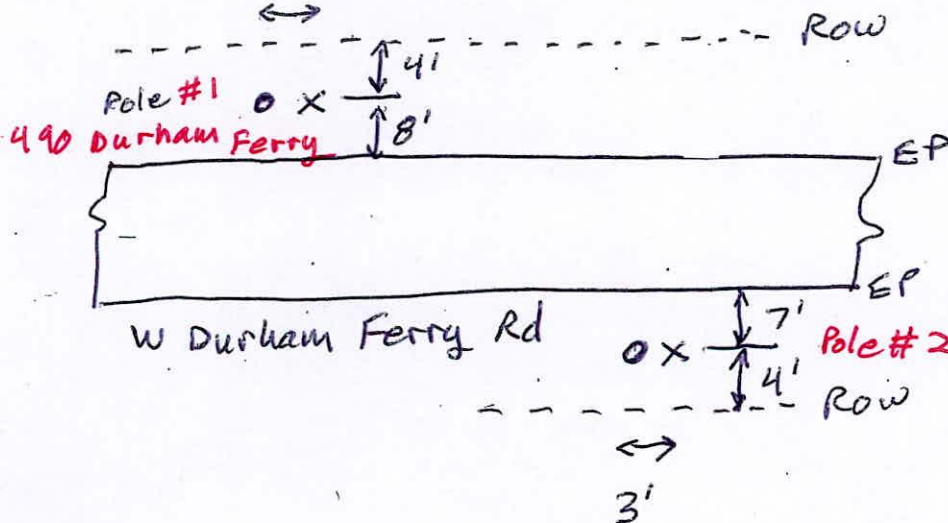 Row
4'
Pole #1 X
8'
490 Durham Ferry
EP
EP
W Durham Ferry Rd
7'
X Pole # 2
4'
Row
3'